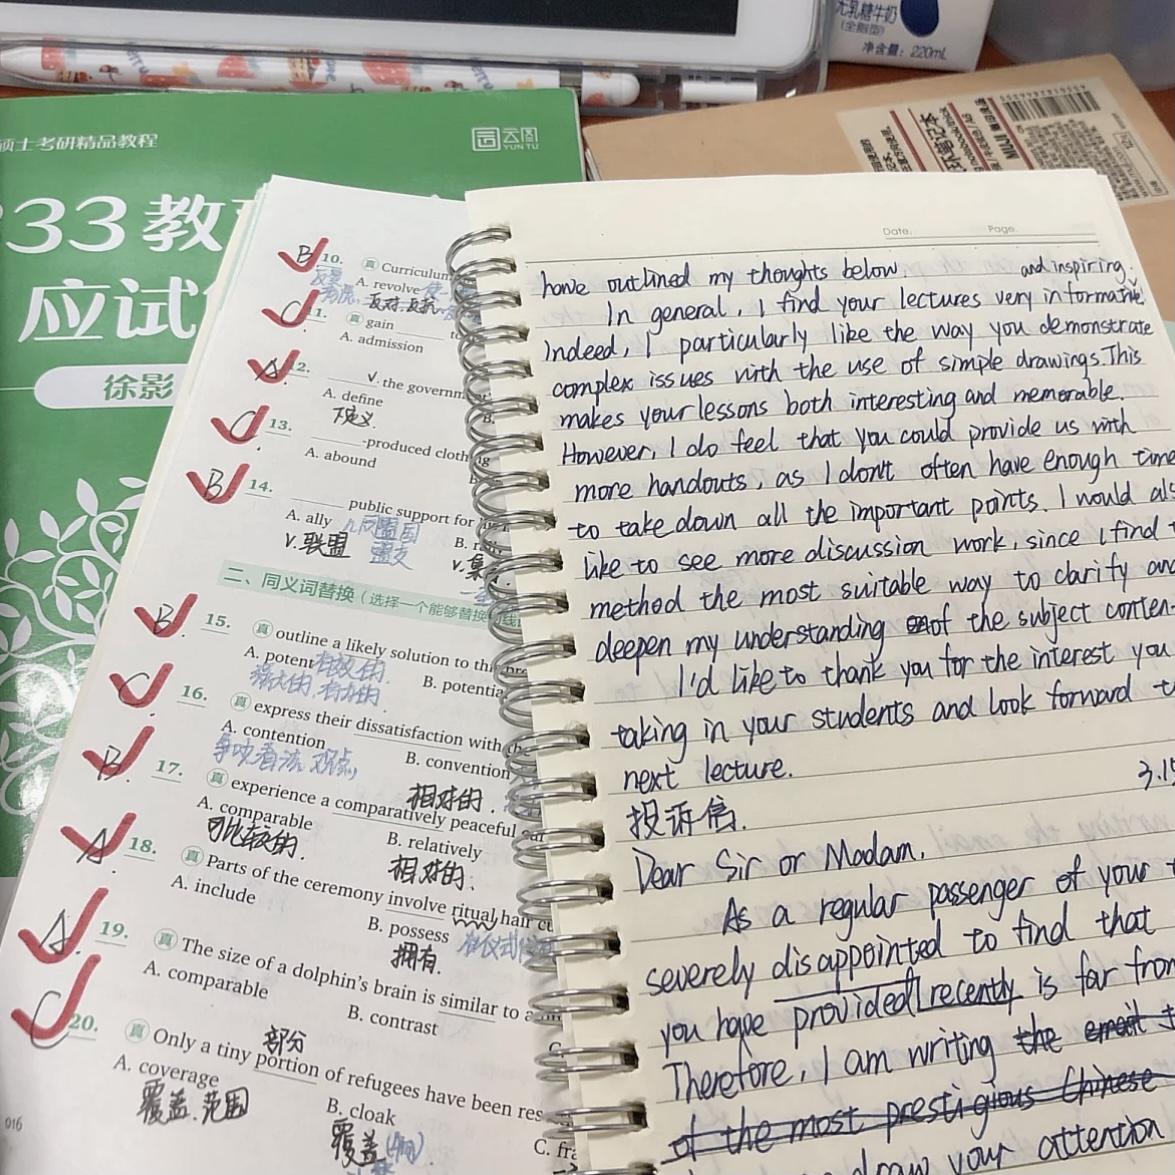 无乳糖牛奶
(全脂型)
净含量：220mL
MUJI
硕士考研精品教程
云图
YUN TU
333教
应试
徐影
B 10. 真 Curriculum
A. revolve
反对.反抗
C 11. 真 gain
A. admission
A 12. v. the governm
A. define
下定义.
C 13. -produced cloth
A. abound
B 14. public support for
A. ally
B. r
v.联盟
二、同义词替换（选择一个能够替换
B 15. 真 outline a likely solution to the pre
A. potent
B. potentia
C 16. 真 express their dissatisfaction with the
A. contention
B. convention
B 17. 真 experience a comparatively peaceful
相对的.
A. comparable
B. relatively
可比较的.
相对的.
A 18. 真 Parts of the ceremony involve ritual hair cu
A. include
B. possess
拥有.
A 19. 真 The size of a dolphin's brain is similar to a
A. comparable
B. contrast
C 20. 真 Only a tiny portion of refugees have been res
部分
A. coverage
B. cloak
C. fra
覆盖.范围
覆盖
016
Date. Page.
have outlined my thoughts below.
and inspiring.
In general, I find your lectures very informative.
Indeed, I particularly like the way you demonstrate
complex issues with the use of simple drawings. This
makes your lessons both interesting and memorable.
However, I do feel that you could provide us with
more handouts, as I don't often have enough time
to take down all the important points. I would als
like to see more discussion work, since I find t
method the most suitable way to clarify and
deepen my understanding of the subject conten
I'd like to thank you for the interest you
taking in your students and look forward t
next lecture.
3.15
投诉信.
Dear Sir or Madam,
As a regular passenger of your
severely disappointed to find that
you have provided recently is far from
Therefore, I am writing the email t
of the most prestigious Chinese
draw your attention